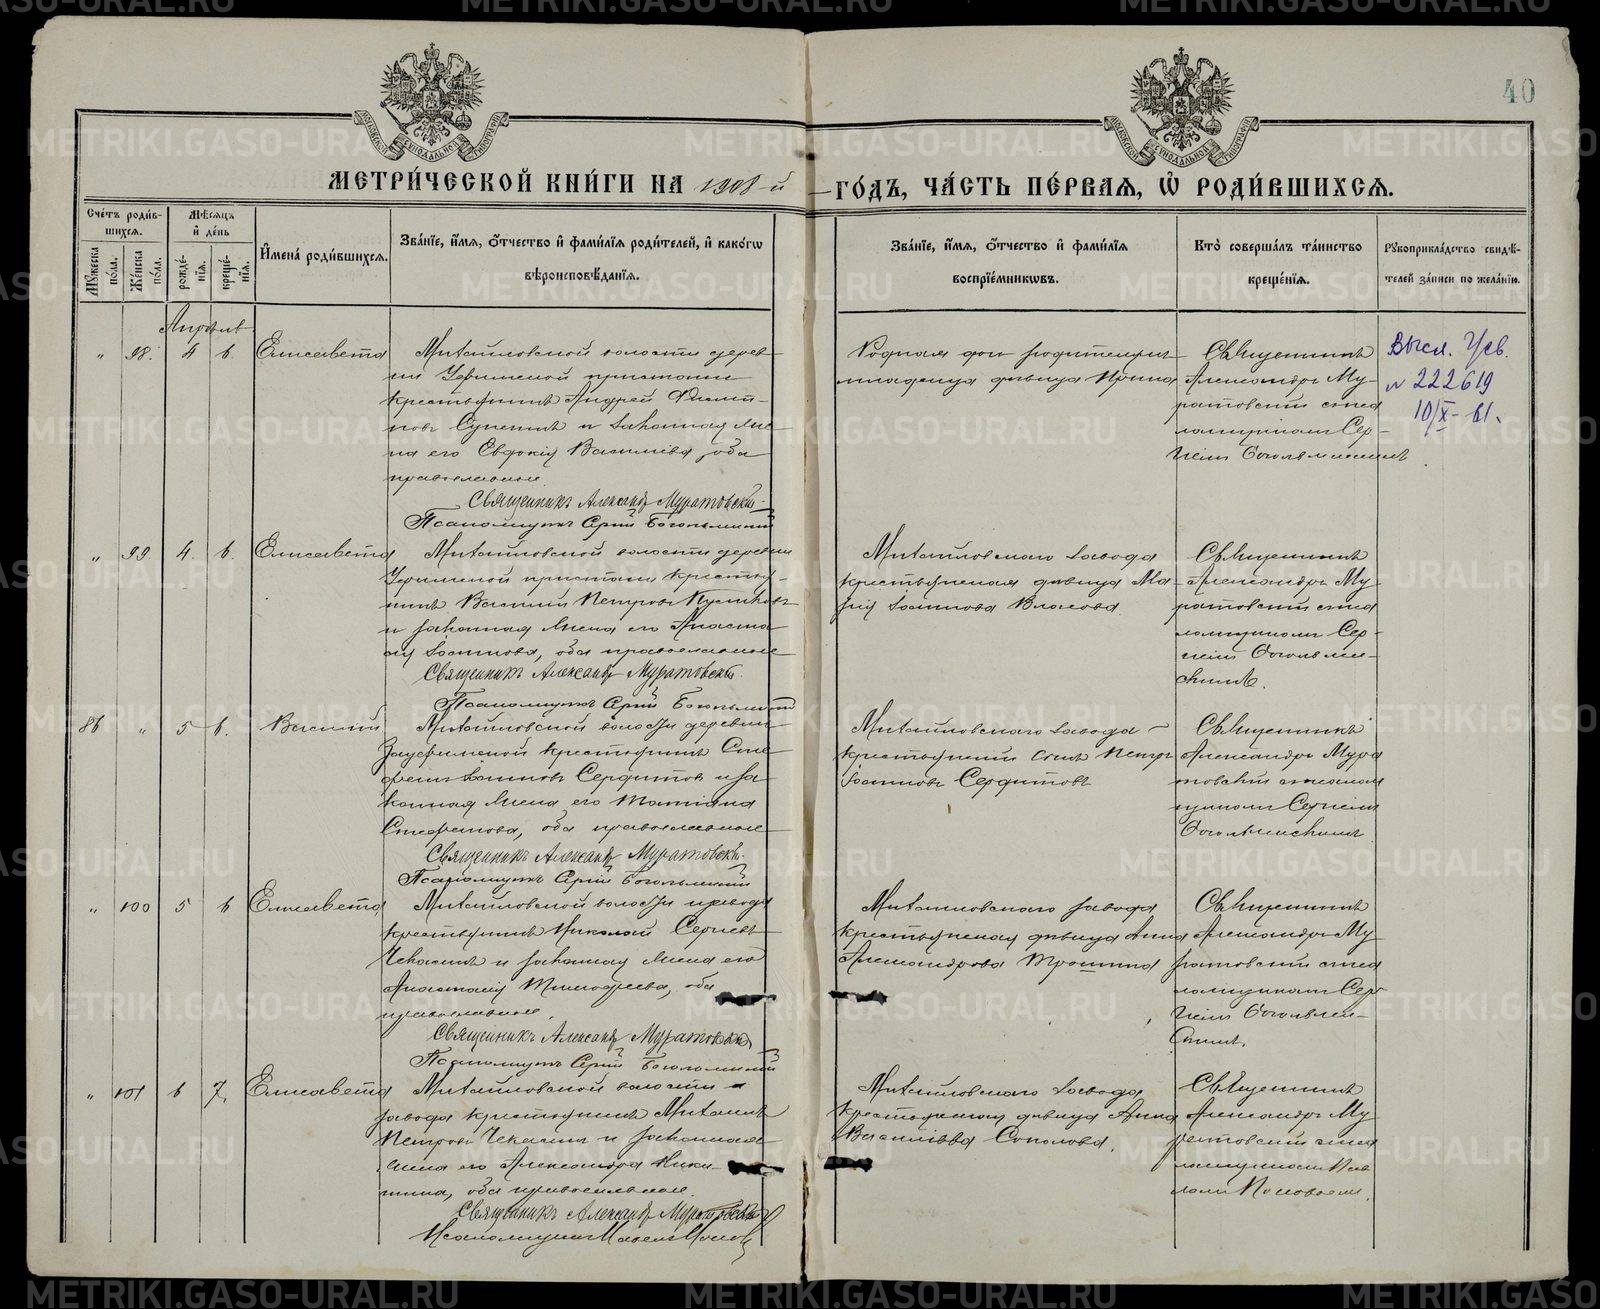 40
МОСКОВСКОЙ СѴНОДАЛЬНОЙ ТИПОГРАФІИ
МОСКОВСКОЙ СѴНОДАЛЬНОЙ ТИПОГРАФІИ
МЕТРИ́ЧЕСКОЙ КНИ́ГИ НА 1908-й ГО́ДЪ, ЧА́СТЬ ПЕ́РВАЯ, Ѡ҆ РОДИ́ВШИХСЯ.
Сче́тъ роди́вшихся.
Мꙋ́жеска по́ла.
Же́нска по́ла.
Мѣ́сяцъ и҆ де́нь
рожде́нїя.
креще́нїя.
И҆мена̀ роди́вшихся.
Зва́нїе, и҆́мя, ѻ҆́тчество и҆ фами́лїя роди́телей, и҆ како́гѡ вѣроисповѣ́данїя.
Зва́нїе, и҆́мя, ѻ҆́тчество и҆ фами́лїя воспрїе́мникѡвъ.
Кто̀ соверша́лъ та́инство креще́нїя.
Рꙋкоприкла́дство свидѣ́телей за́писи по жела́нїю.
Апрѣль
" 98. 4 6. Елисавета
Михайловской волости дерев-
ни Уфимской пристани
крестьянинъ Андрей Филип-
повъ и законная же-
на его Евдокія Васильева, оба
православные.
Священникъ Александръ Муратовскій
Псаломщикъ Сергій Боголѣпскій
Родная дочь родителей
младенца дѣвица Ирина
Священникъ
Александръ Му-
ратовскій съ пса-
ломщикомъ Сер-
гіемъ
Высл. Усв.
№ 222619
10/X - 61.
" 99 4. 6. Елисавета
Михайловской волости деревни
Уфимской пристани крестья-
нинъ Василій Петровъ
и законная жена его Анаста-
сія Іоаннова, оба православные
Священникъ Александръ Муратовскій.
Псаломщикъ Сергій
Михайловскаго завода
крестьянская дѣвица Ма-
рія Іоаннова Власова
Священникъ
Александръ Му-
ратовскій съ пса-
ломщикомъ Сер-
гіемъ
86 " 5 6. Василій
Михайловской волости деревни
Зауфимской крестьянинъ Сте-
фанъ Іоанновъ Серфитовъ и за-
конная жена его Татіана
Стефанова, оба православные
Священникъ Александръ Муратовскій.
Псаломщикъ Сергій
Михайловскаго завода
крестьянскій сынъ Петръ
Іоанновъ Серфитовъ
Священникъ
Александръ Мура-
товскій съ псалом-
щикомъ Сергіемъ
" 100 5 6 Елисавета
Михайловской волости и завода
крестьянинъ Николай Сергіевъ
Чекасинъ и законная жена его
Анастасія Тимофеева, оба
православные.
Священникъ Александръ Муратовскій
Псаломщикъ Сергій
Михайловскаго завода
крестьянская дѣвица Анна
Александрова Трошина
Священникъ
Александръ Му-
ратовскій съ пса-
ломщикомъ Сер-
гіемъ
" 101 6 7. Елисавета
Михайловской волости и
завода крестьянинъ Михаилъ
Петровъ Чекасинъ и законная
жена его Александра Ники-
тина, оба православные.
Священникъ Александръ Муратовскій
Псаломщикъ Павелъ Поповъ
Михайловскаго завода
крестьянская дѣвица Анна
Васильева Соколова.
Священникъ
Александръ Му-
ратовскій съ пса-
ломщикомъ Пав-
ломъ Поповымъ.
METRIKI.GASO-URAL.RU